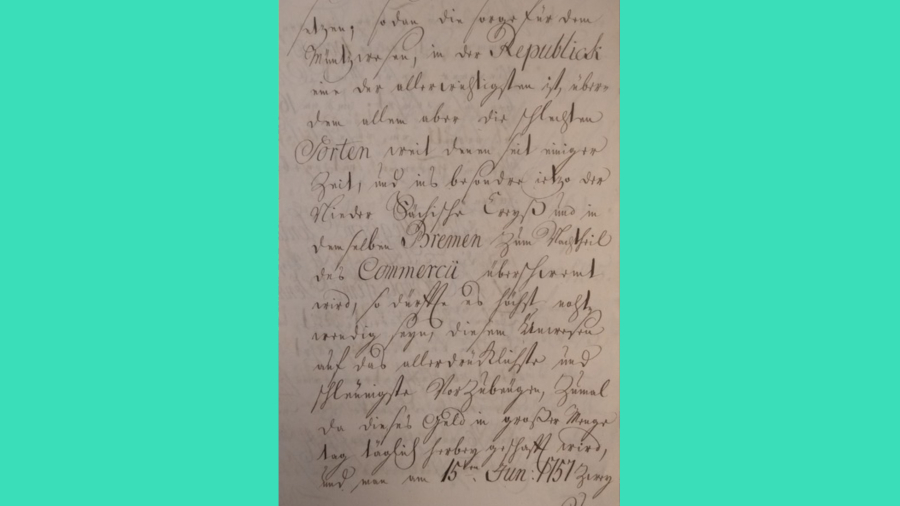 etzen, sodan die sorge für dem
Müntzwesen, in der Republick
eine der allerwichtigsten ist, über-
dem allem aber die schlechten
Sorten weit denen seit einiger
Zeit, und ins besondre ietzo der
Nieder Sächische Creyß und in
demselben Bremen zum Nachtheil
des Commercii überschwemt
wird, so dürffte es höchst noht,
wendig seyn, diesem Unwesen
auf das allerdrücklichste und
schleunigste Vorzubeugen, Zumal
da dieses Geld in großer Menge
tag täglich herbey geschafft wird,
und nun am 15ten Jun: 1757 zwey